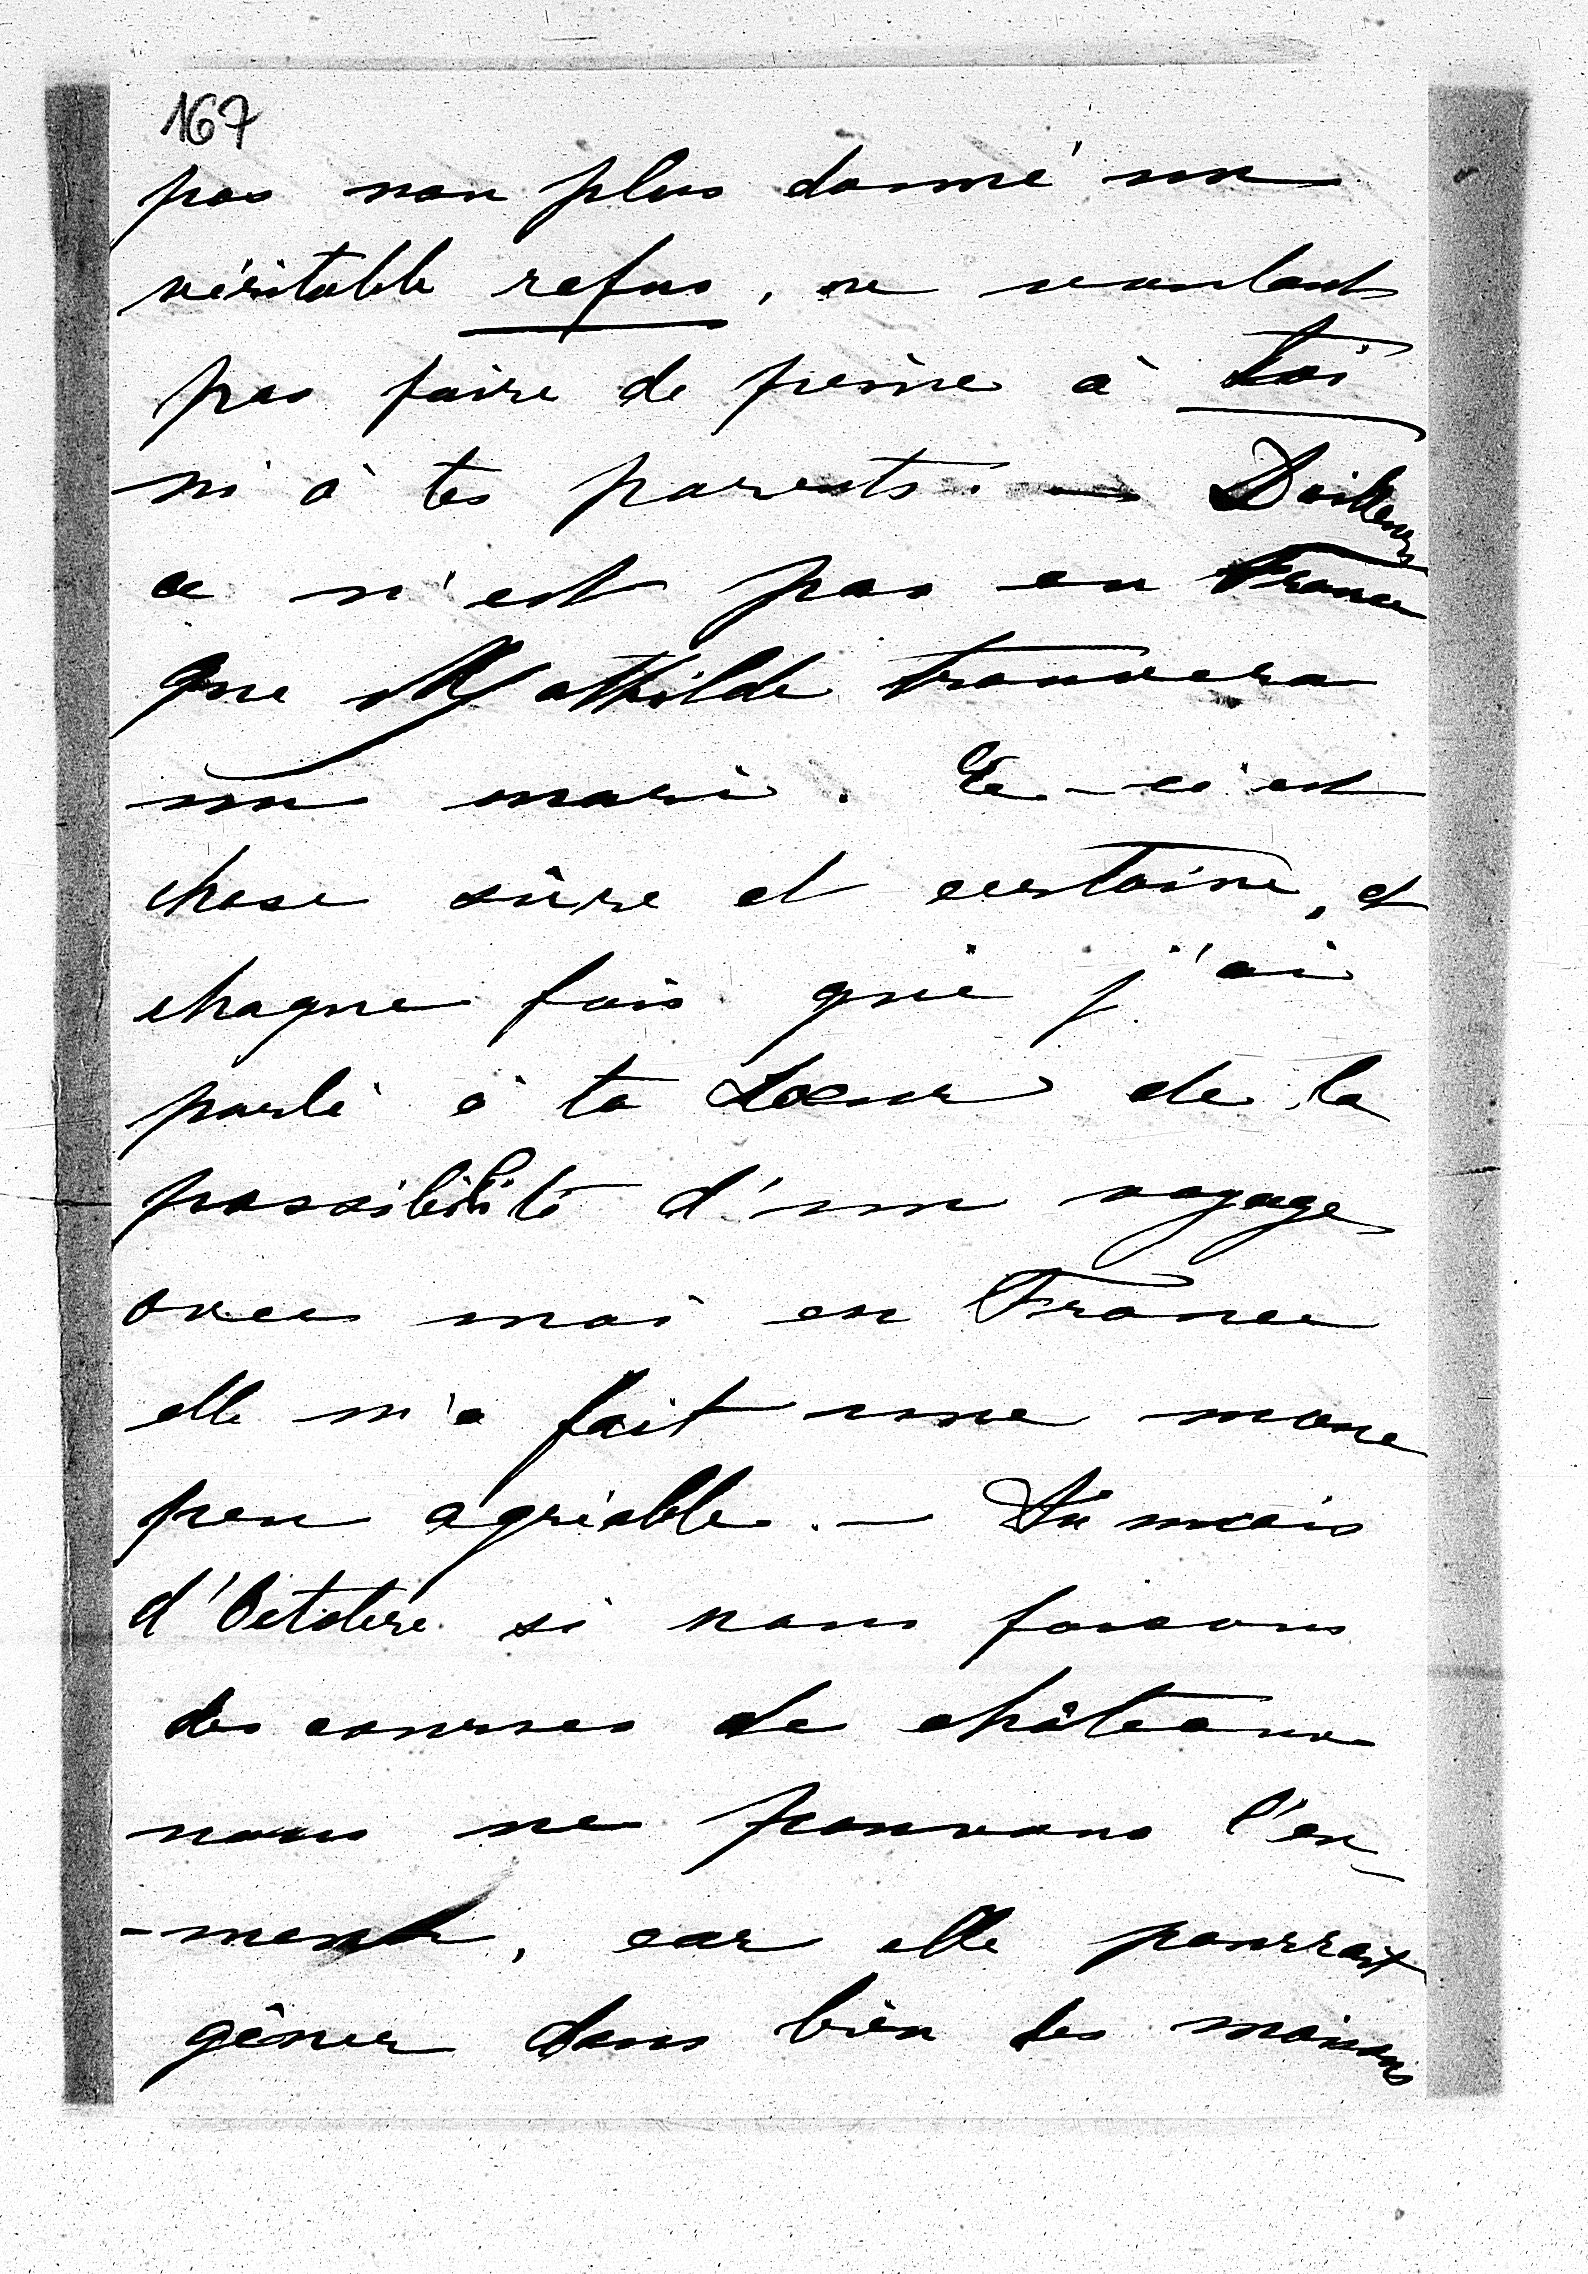 167
pas non plus donné un
véritable refus, ne voulant
pas faire de peine à toi
ni à tes parents. — D'ailleurs
ce n'est pas en France
que Mathilde trouvera
un mari. Ce-ci est
chose sûre et certaine, et
chaque fois que j'ai
parlé à ta Soeur de la
possibilité d'un voyage
avec moi en France
elle m'a fait une moue
peu agréable. — Au mois
d'Octobre si nous faisons
des courses de châteaux
nous ne pouvons l'en-
-mener, car elle pourrait
gêner dans bien des maisons